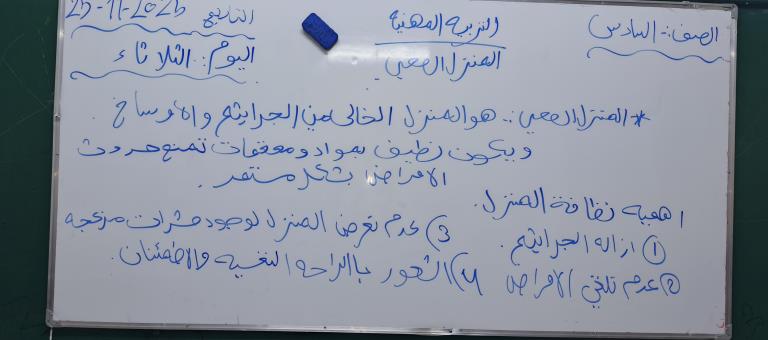 الصف:- السادس
التربية المهنية
التاريخ 25-11-2025
المنزل الصحي
اليوم:. الثلاثاء
* المنزل الصحي:. هو المنزل الخالي من الجراثيم والأوساخ.
ويكون نظيف بمواد ومعقمات تمنع حدوث
الامراض بشكل مستمر.
اهمية نظافة المنزل.
① ازالة الجراثيم.
3) عدم تعرض المنزل لوجود حشرات مزعجه
② عدم تلقي الامراض
4) الشعور بالراحه النفسيه والاطمئنان.